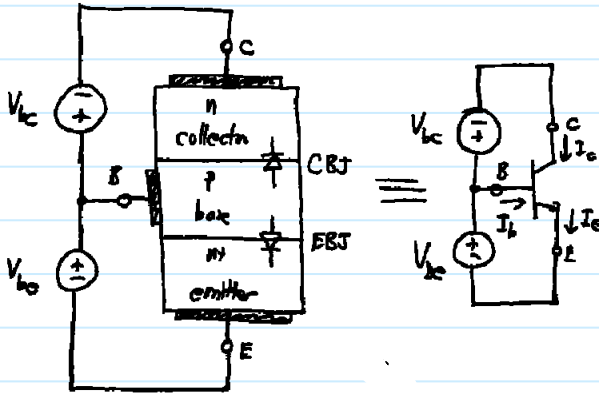 C
V_bc
- +
n
collector
CBJ
B
p
base
EBJ
V_be
+ -
n+
emitter
E
≡
V_bc
- +
C
↓ I_c
B
→ I_b
↓ I_e
V_be
+ -
E